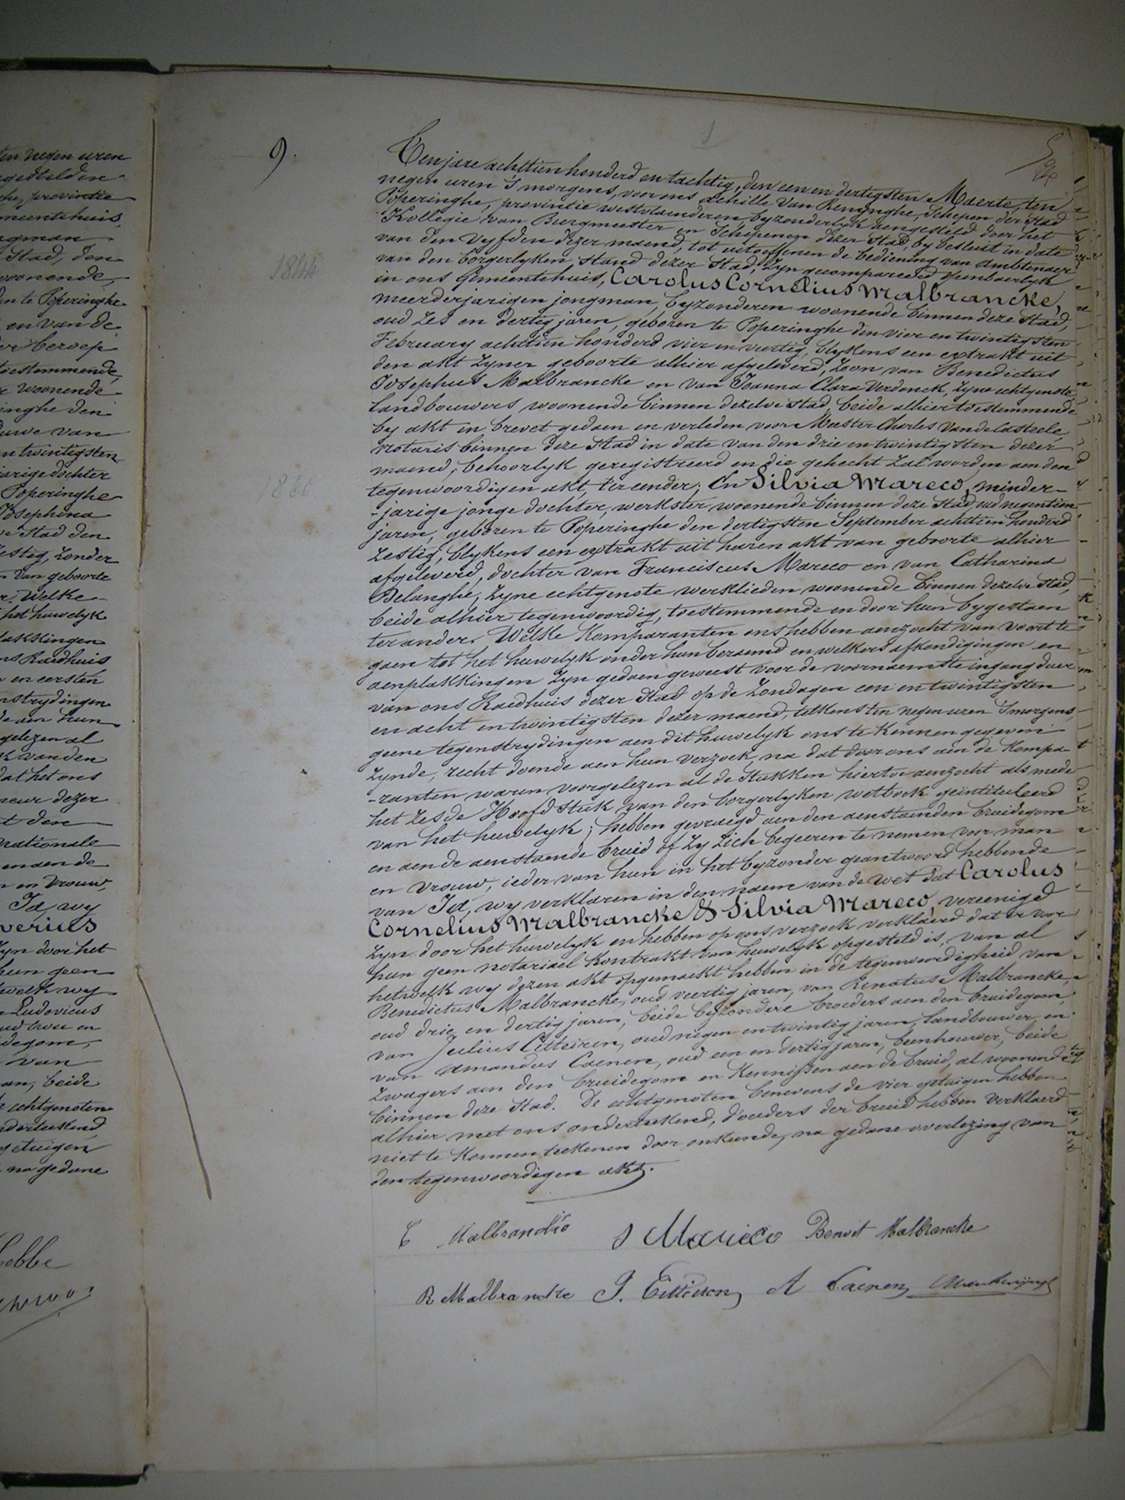 9.
1844
1860
Ten jare achttien honderd en tachtig, den een en dertigsten Maerte, ten
negen uren 's morgens, voor ons Achille Van Renynghe, Schepen der Stad
Poperinghe, provintie westvlaenderen, byzonderlyk aengesteld door het
Kollegie van Burgmeester en Schepenen dezer Stad, by besluit in date
van den vyfden dezer maend, tot uitoeffenen de bediening van Ambtenaer
van den borgerlyken stand dezer Stad, Zyn gecompareerd openbaerlyk
in ons Gemeentehuis, Carolus Cornelius Malbrancke,
meerderjarigen jongman, byzonderen woonende binnen deze Stad,
oud Zes en dertig jaren, geboren te Poperinghe den vier en twintigsten
February achttien honderd vier en veertig, blykens een extrakt uit
den akt zyner geboorte alhier afgeleverd, Zoon van Benedictus
Josephus Malbrancke en van Joanna Clara Verdonck, Zyne echtgenote,
landbouwers, woonende binnen dezelve Stad, beide alhier toestemmende
by akt in brevet gedaen en verleden voor Meester Charles Vandecasteele
notaris binnen deze Stad in date van den drie en twintigsten dezer
maend, behoorlyk geregistreerd en die gehecht zal worden aen den
tegenwoordigen akt, ter eender; En Silvia Mareco, minder-
-jarige jonge dochter, werkster, woonende binnen deze Stad, oud negentien
jaren, geboren te Poperinghe den dertigsten September achttien honderd
Zestig, blykens een extrakt uit haren akt van geboorte alhier
afgeleverd, dochter van Franciscus Mareco en van Catharina
Delanghe, Zyne echtgenote werklieden woonende binnen dezelve Stad,
beide alhier tegenwoordig, toestemmende en door hun bygestaen
ter ander. Welke Komparanten ons hebben aenzocht van voort te
gaen tot het huwelyk onder hun beraemd en welkers afkondigingen en
aenplakkingen Zyn gedaen geweest voor de voornaemste ingangdeur
van ons Raedhuis dezer Stad op de Zondagen een en twintigsten
en acht en twintigsten dezer maend, telkens ten negen uren 's morgens,
geene tegenstrydingen aen dit huwelyk ons te kennen gegeven
Zynde, recht doende aen hun verzoek, na dat door ons aen de Kompa-
-ranten waren voorgelezen al de Stukken hiertoe aenzocht als mede
het Zesde Hoofdstuk van den borgerlyken wetboek geintituleerd
van het huwelyk; hebben gevraegd aen den aenstaenden bruidegom
en aen de aenstaende bruid of Zy Zich begeeren te nemen voor man
en vrouw, ieder van hun in het byzonder geantwoord hebbende
van Ja, wy verklaren in den naem van de wet dat Carolus
Cornelius Malbrancke & Silvia Mareco, vereenigd
Zyn door het huwelyk en hebben op ons verzoek verklaerd dat er voor
hun geen notariael kontrakt van huwelyk opgesteld is, van al
hetwelk wy dezen akt opgemaekt hebben in de tegenwoordigheid van
Benedictus Malbrancke, oud veertig jaren, van Renatus Malbrancke,
oud drie en dertig jaren, beide byzondere broeders aen den bruidegom,
van Julius oud negen en twintig jaren, landbouwer, en
van Amandus Caenen, oud een en dertig jaren, beenhouwer, beide
Zwagers aen den bruidegom en Kennissen aen de bruid, al woonende
binnen deze Stad. De echtgenoten benevens de vier getuigen hebben
alhier met ons onderteekend, d'ouders der bruid hebben verklaerd
niet te konnen teekenen door onkunde, na gedane overlezing van
den tegenwoordigen akt.
C Malbrancke S Mareco Benoit Malbrancke
R Malbrancke J. A Caenen